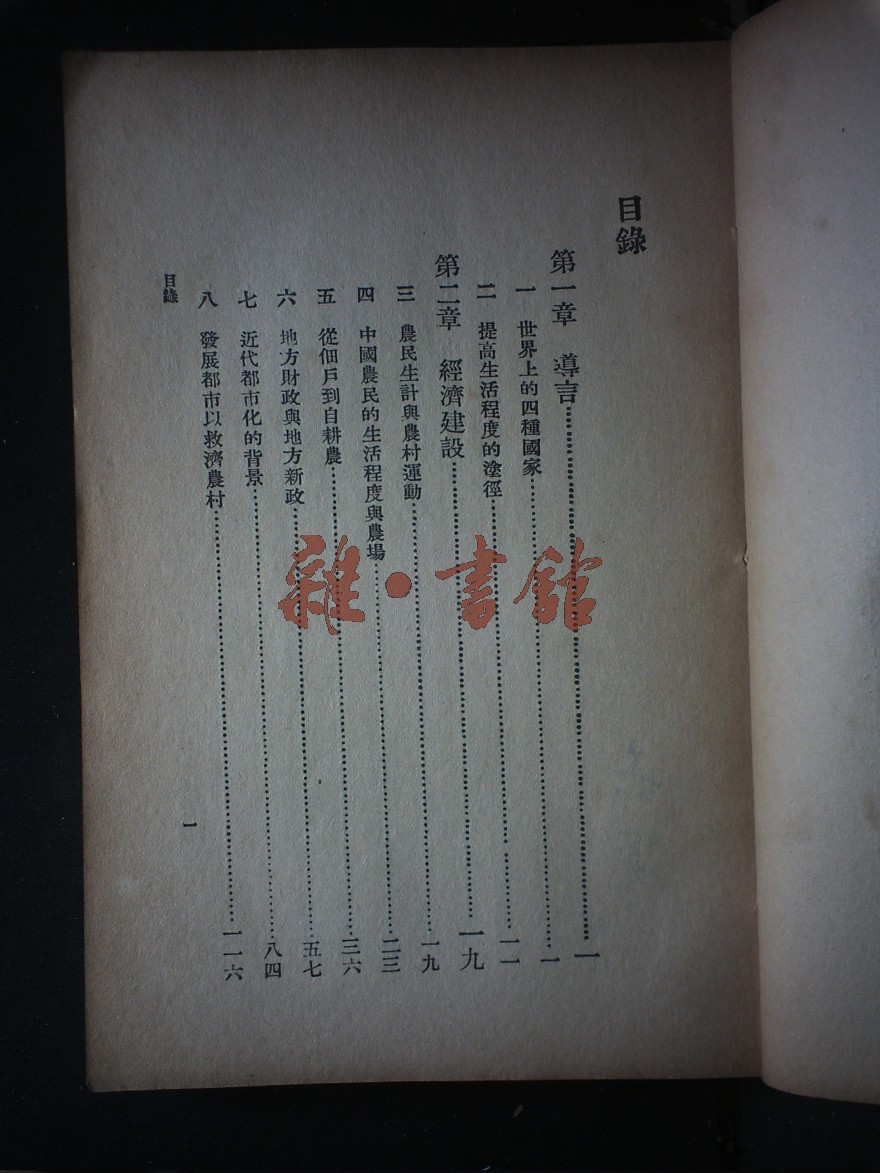 目錄
第一章　導言…………一
一　世界上的四種國家…………一
二　提高生活程度的塗徑…………一一
第二章　經濟建設…………一九
三　農民生計與農村運動…………一九
四　中國農民的生活程度與農場…………二三
五　從佃戶到自耕農…………三六
六　地方財政與地方新政…………五七
七　近代都市化的背景…………八四
八　發展都市以救濟農村…………一一六
目錄
一
雜·書館